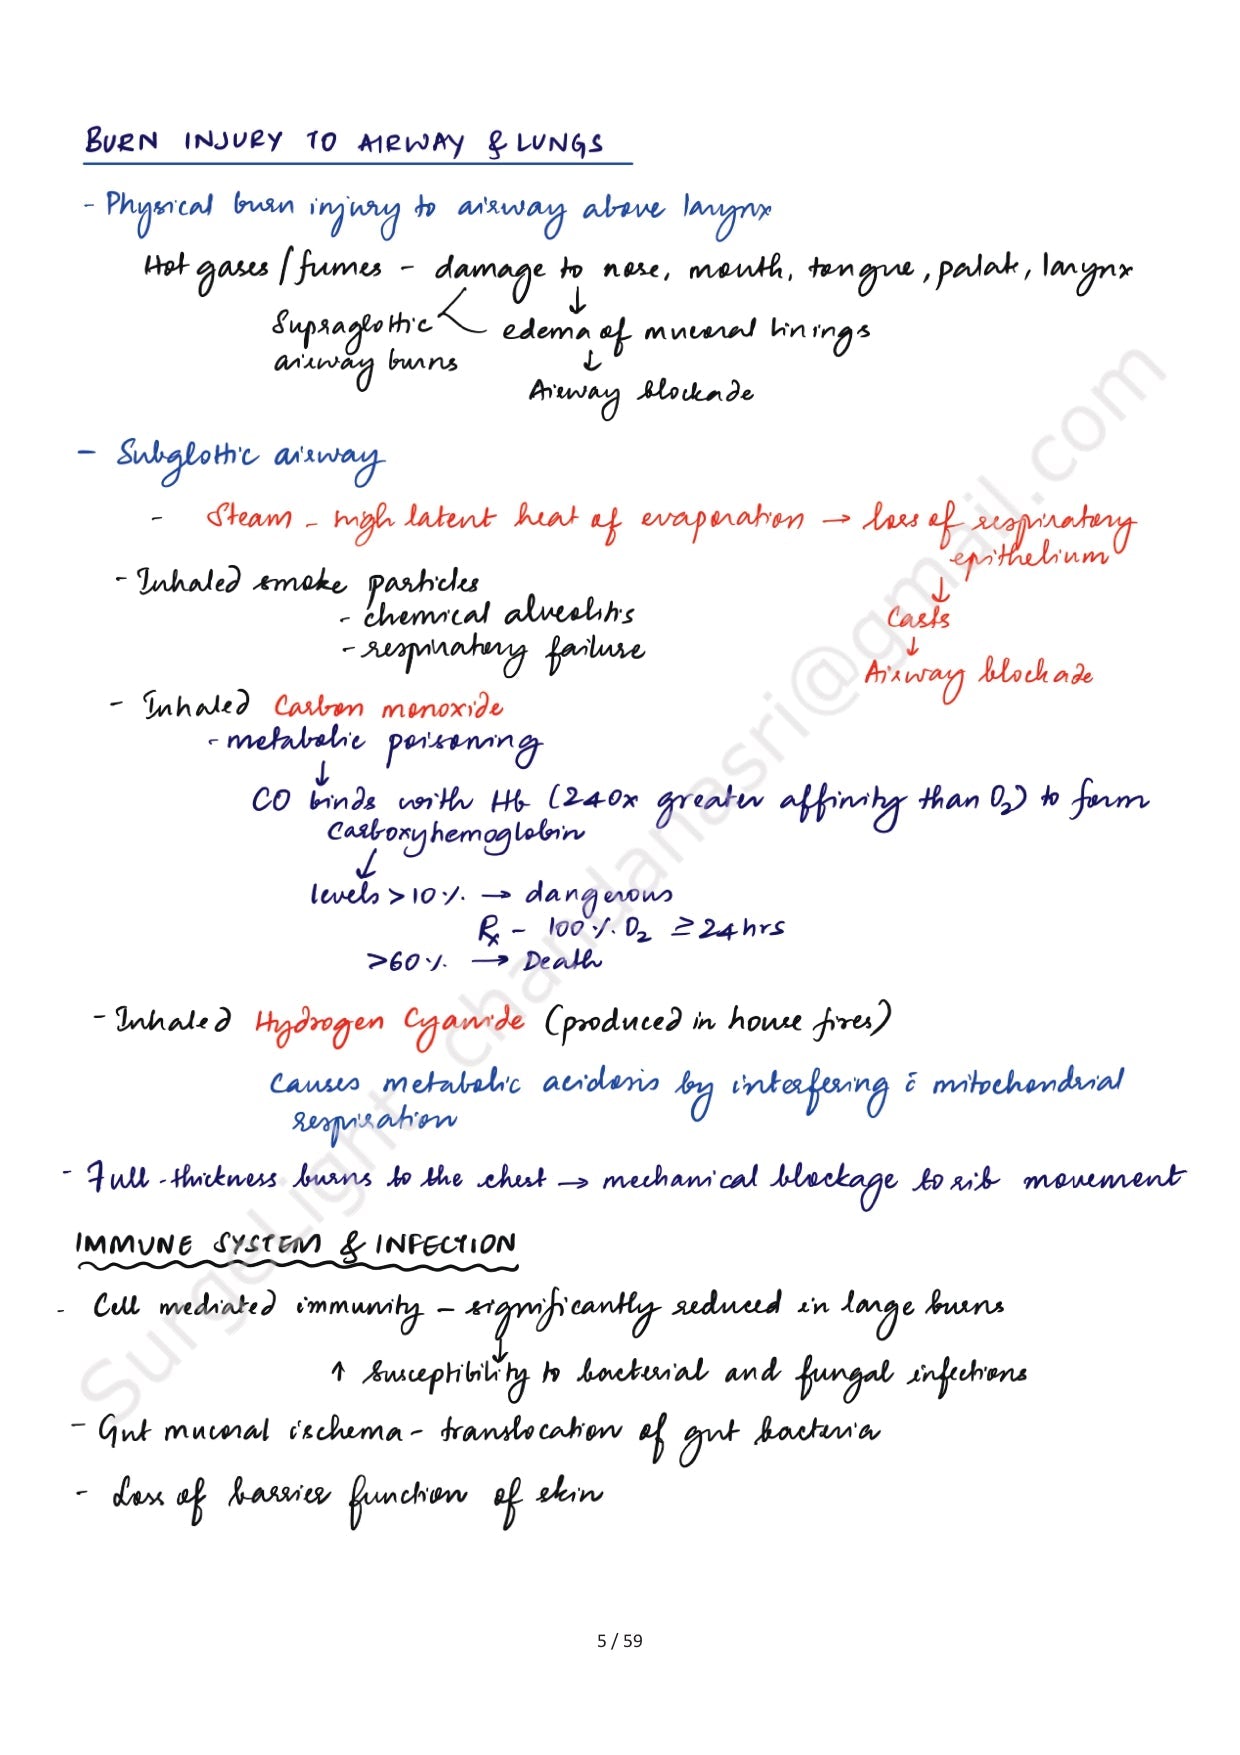 BURN INJURY TO AIRWAY & LUNGS
- Physical burn injury to airway above larynx
Hot gases / fumes - damage to nose, mouth, tongue, palate, larynx
↓
Supraglottic
airway burns
edema of mucosal linings
↓
Airway blockade
- Subglottic airway
- Steam - high latent heat of evaporation → loss of respiratory
epithelium
↓
Casts
↓
Airway blockade
- Inhaled smoke particles
- chemical alveolitis
- respiratory failure
- Inhaled Carbon monoxide
- metabolic poisoning
↓
CO binds with Hb (240x greater affinity than O₂) to form
Carboxyhemoglobin
↓
levels > 10 %. → dangerous
Rx - 100 %. O₂ ≥ 24 hrs
>60 %. → Death
- Inhaled Hydrogen Cyanide (produced in house fires)
Causes metabolic acidosis by interfering c̄ mitochondrial
respiration
- Full-thickness burns to the chest → mechanical blockage to rib movement
IMMUNE SYSTEM & INFECTION
- Cell mediated immunity - significantly reduced in large burns
↓
↑ susceptibility to bacterial and fungal infections
- Gut mucosal ischema - translocation of gut bacteria
- Loss of barrier function of skin
5 / 59
SurgeLight chandanasri@gmail.com